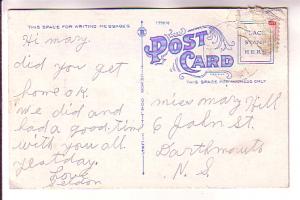 THIS SPACE FOR WRITING MESSAGES
POST CARD
PLACE
STAMP
HERE
THIS SPACE FOR ADDRESS ONLY
Hi mary
did you get
home ok.
we did and
had a good time
with you all
yestday.
Love
Weldon
miss mary Hill
6 John St.
Dartmouth
N. S